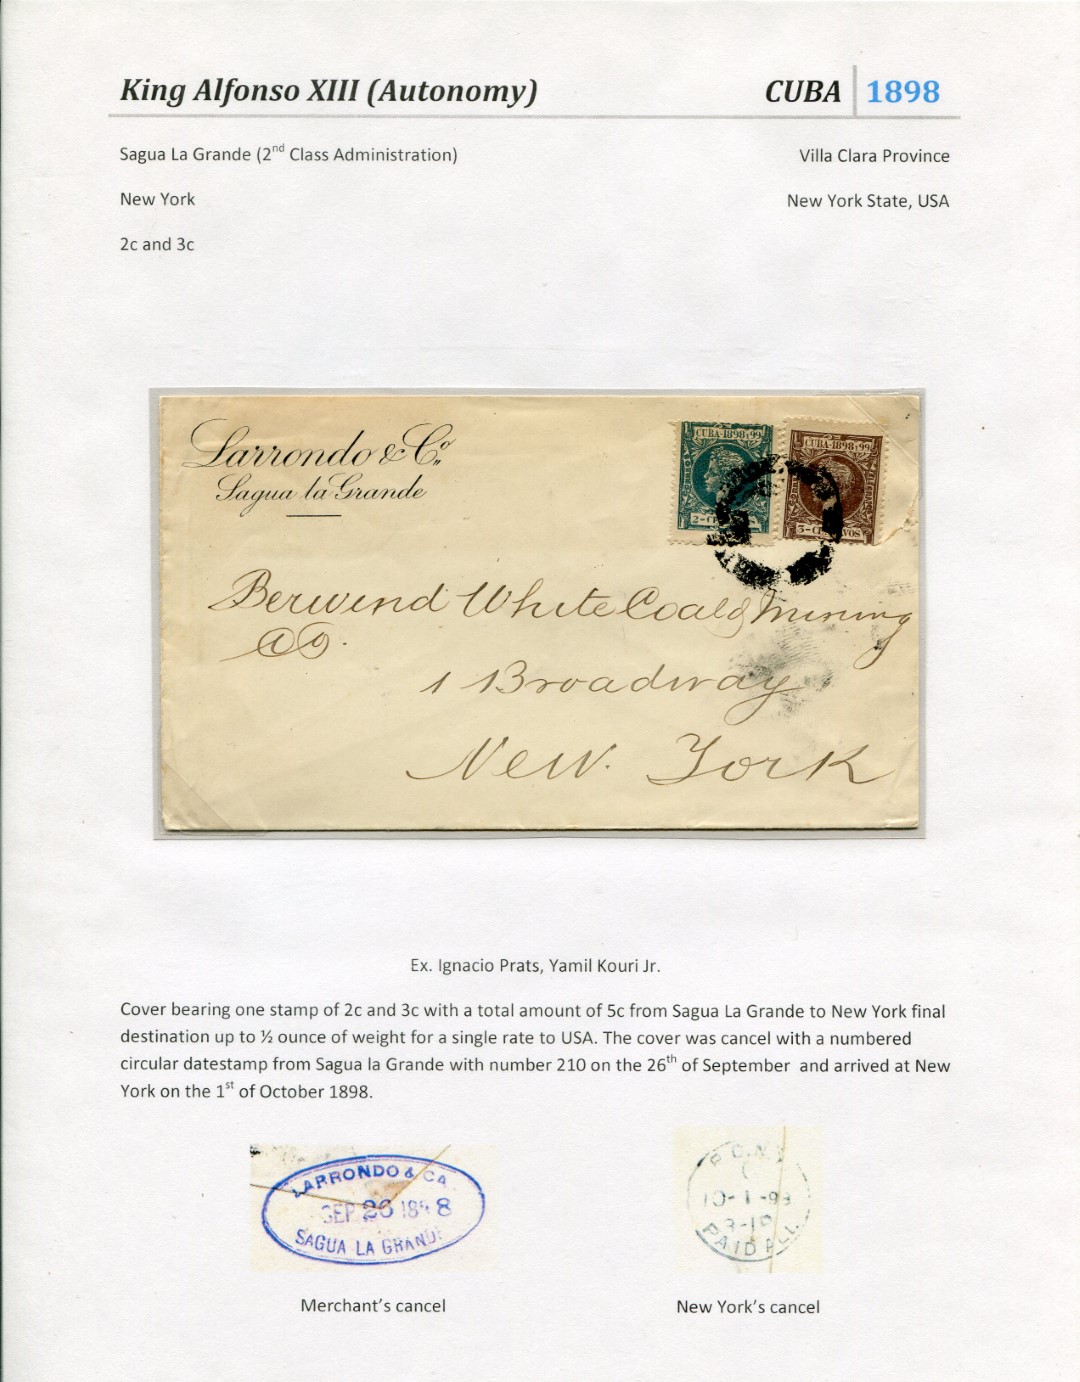 King Alfonso XIII (Autonomy) CUBA 1898
Sagua La Grande (2nd Class Administration) Villa Clara Province
New York New York State, USA
2c and 3c
Larrondo & Co.
Sagua la Grande
CUBA·1898 y 99
CUBA·1898 y 99
3-CENTAVOS
Berwind White Coal & Mining
Co.
1 Broadway
New. York
Ex. Ignacio Prats, Yamil Kouri Jr.
Cover bearing one stamp of 2c and 3c with a total amount of 5c from Sagua La Grande to New York final
destination up to ½ ounce of weight for a single rate to USA. The cover was cancel with a numbered
circular datestamp from Sagua la Grande with number 210 on the 26th of September and arrived at New
York on the 1st of October 1898.
LARRONDO & CA
SEP 26 1898
SAGUA LA GRANDE
P.O.N.Y.
10-1-98
PAID ALL
Merchant's cancel New York's cancel